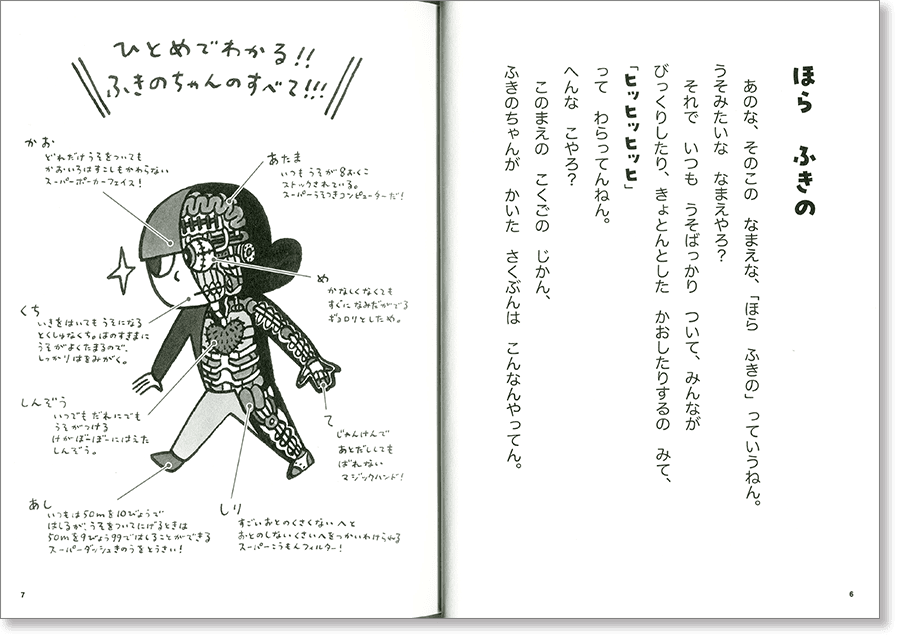 ほら ふきの
あのな、そのこの なまえな、「ほら ふきの」っていうねん。
うそみたいな なまえやろ?
それで いつも うそばっかり ついて、みんなが
びっくりしたり、きょとんとした かおしたりするの みて、
「ヒッヒッヒッヒ」
って わらってんねん。
へんな こやろ?
このまえの こくごの じかん、
ふきのちゃんが かいた さくぶんは こんなんやってん。
6
ひとめでわかる!!
ふきのちゃんのすべて!!!
かお
どれだけうそをついても
かおいろはすこしもかわらない
スーパーポーカーフェイス!
あたま
いつもうそが8おくこ
ストックされている。
スーパーうそつきコンピューターだ!
め
かなしくなくても
すぐになみだがでる
ギョロリとしため。
くち
いきをはいてもうそになる
とくしゅなくち。はのすきまに
うそがよくたまるので、
しっかりはをみがく。
しんぞう
いつでもだれにでも
うそがつける
けがぼーぼーにはえた
しんぞう。
て
じゃんけんで
あとだししても
ばれない
マジックハンド!
あし
いつもは50mを10びょうで
はしるが、うそをついてにげるときは
50mを9びょう99ではしることができる
スーパーダッシュきのうをとうさい!
しり
すごいおとのくさくないへと
おとのしないくさいへをつかいわけられる
スーパーこうもんフィルター!
7